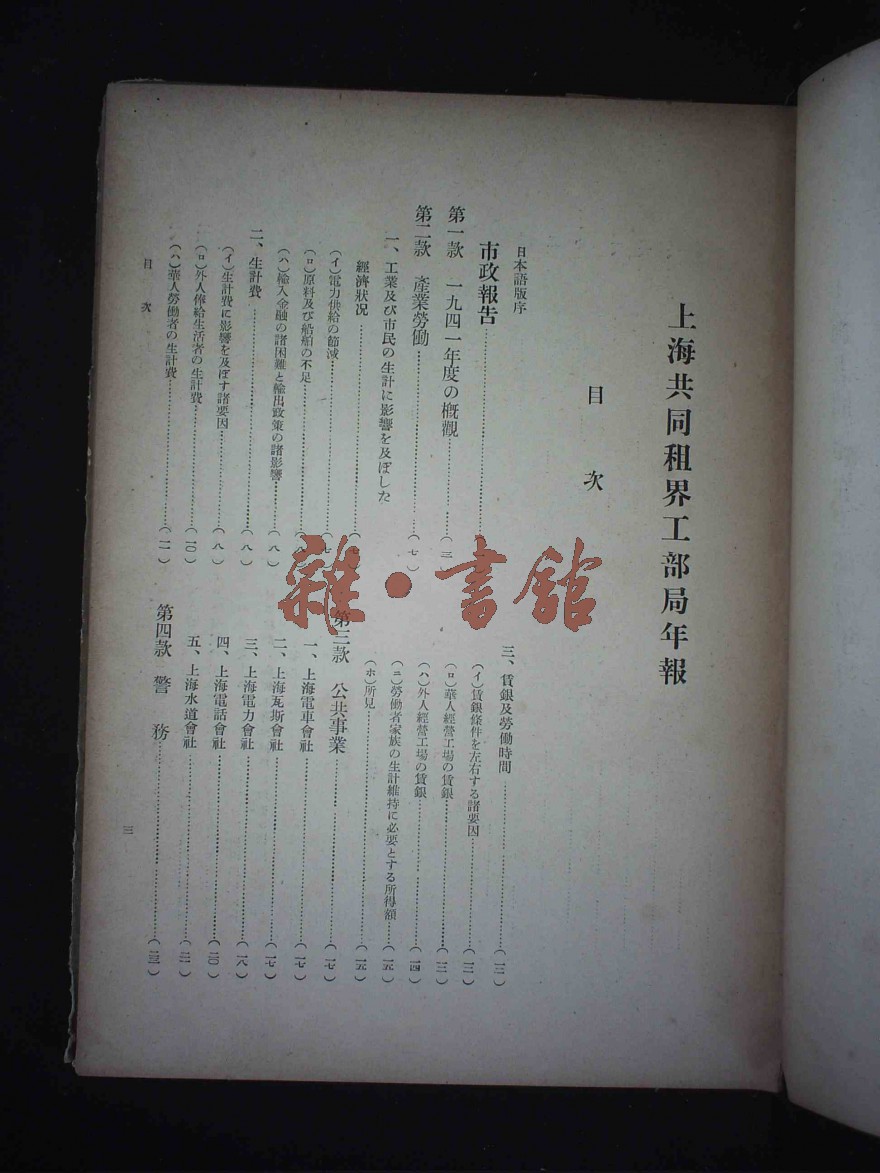 上海共同租界工部局年報
目次
日本語版序
市政報告
第一款 一九四一年度の槪觀……(三)
第二款 產業勞働……(七)
一、工業及び市民の生計に影響を及ぼした
經濟狀況……
(イ)電力供給の節減……
(ロ)原料及び船舶の不足……
(ハ)輸入金融の諸困難と輸出政策の諸影響……(八)
二、生計費……(八)
(イ)生計費に影響を及ぼす諸要因……(八)
(ロ)外人俸給生活者の生計費……(一〇)
(ハ)華人勞働者の生計費……(一一)
三、賃銀及勞働時間……(一三)
(イ)賃銀條件を左右する諸要因……(一三)
(ロ)華人經營工場の賃銀……(一三)
(ハ)外人經營工場の賃銀……(一四)
(ニ)勞働者家族の生計維持に必要とする所得額……(一五)
(ホ)所見……(一五)
第三款 公共事業……(一七)
一、上海電車會社……(一七)
二、上海瓦斯會社……(一七)
三、上海電力會社……(一八)
四、上海電話會社……(二〇)
五、上海水道會社……(二一)
第四款 警務……
目次
三
雜·書館